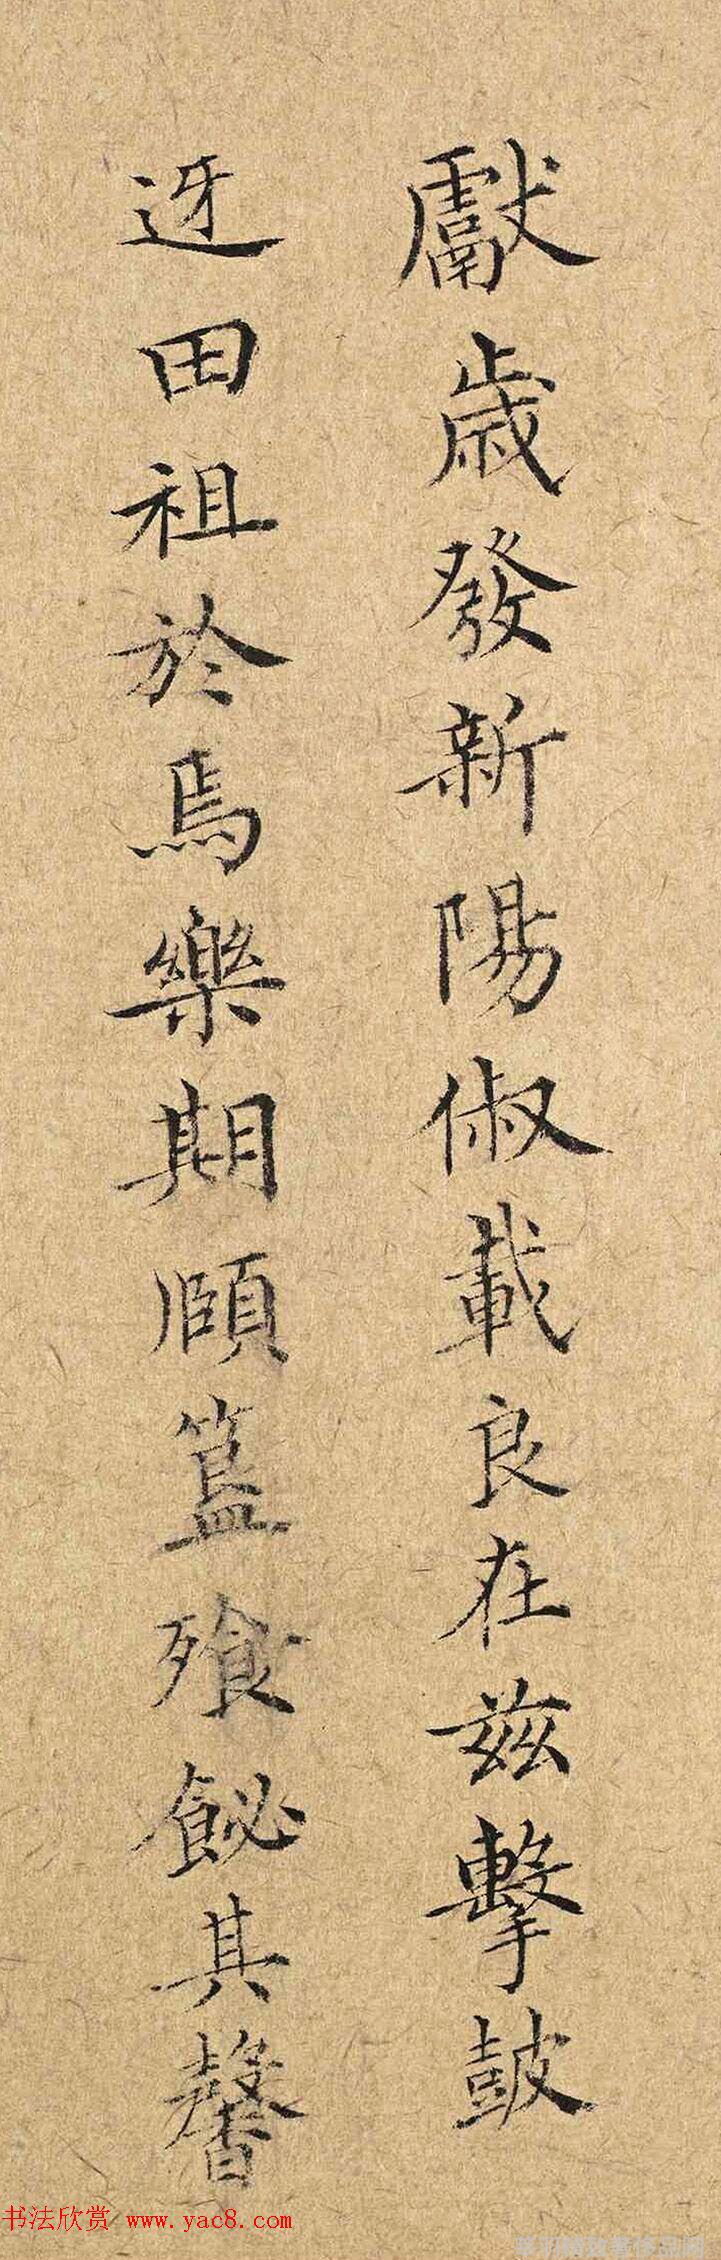 獻歲發新陽俶載良在兹擊鼓
迓田祖於焉樂期頤簋飱飶其馨
书法欣赏 www.yac8.com